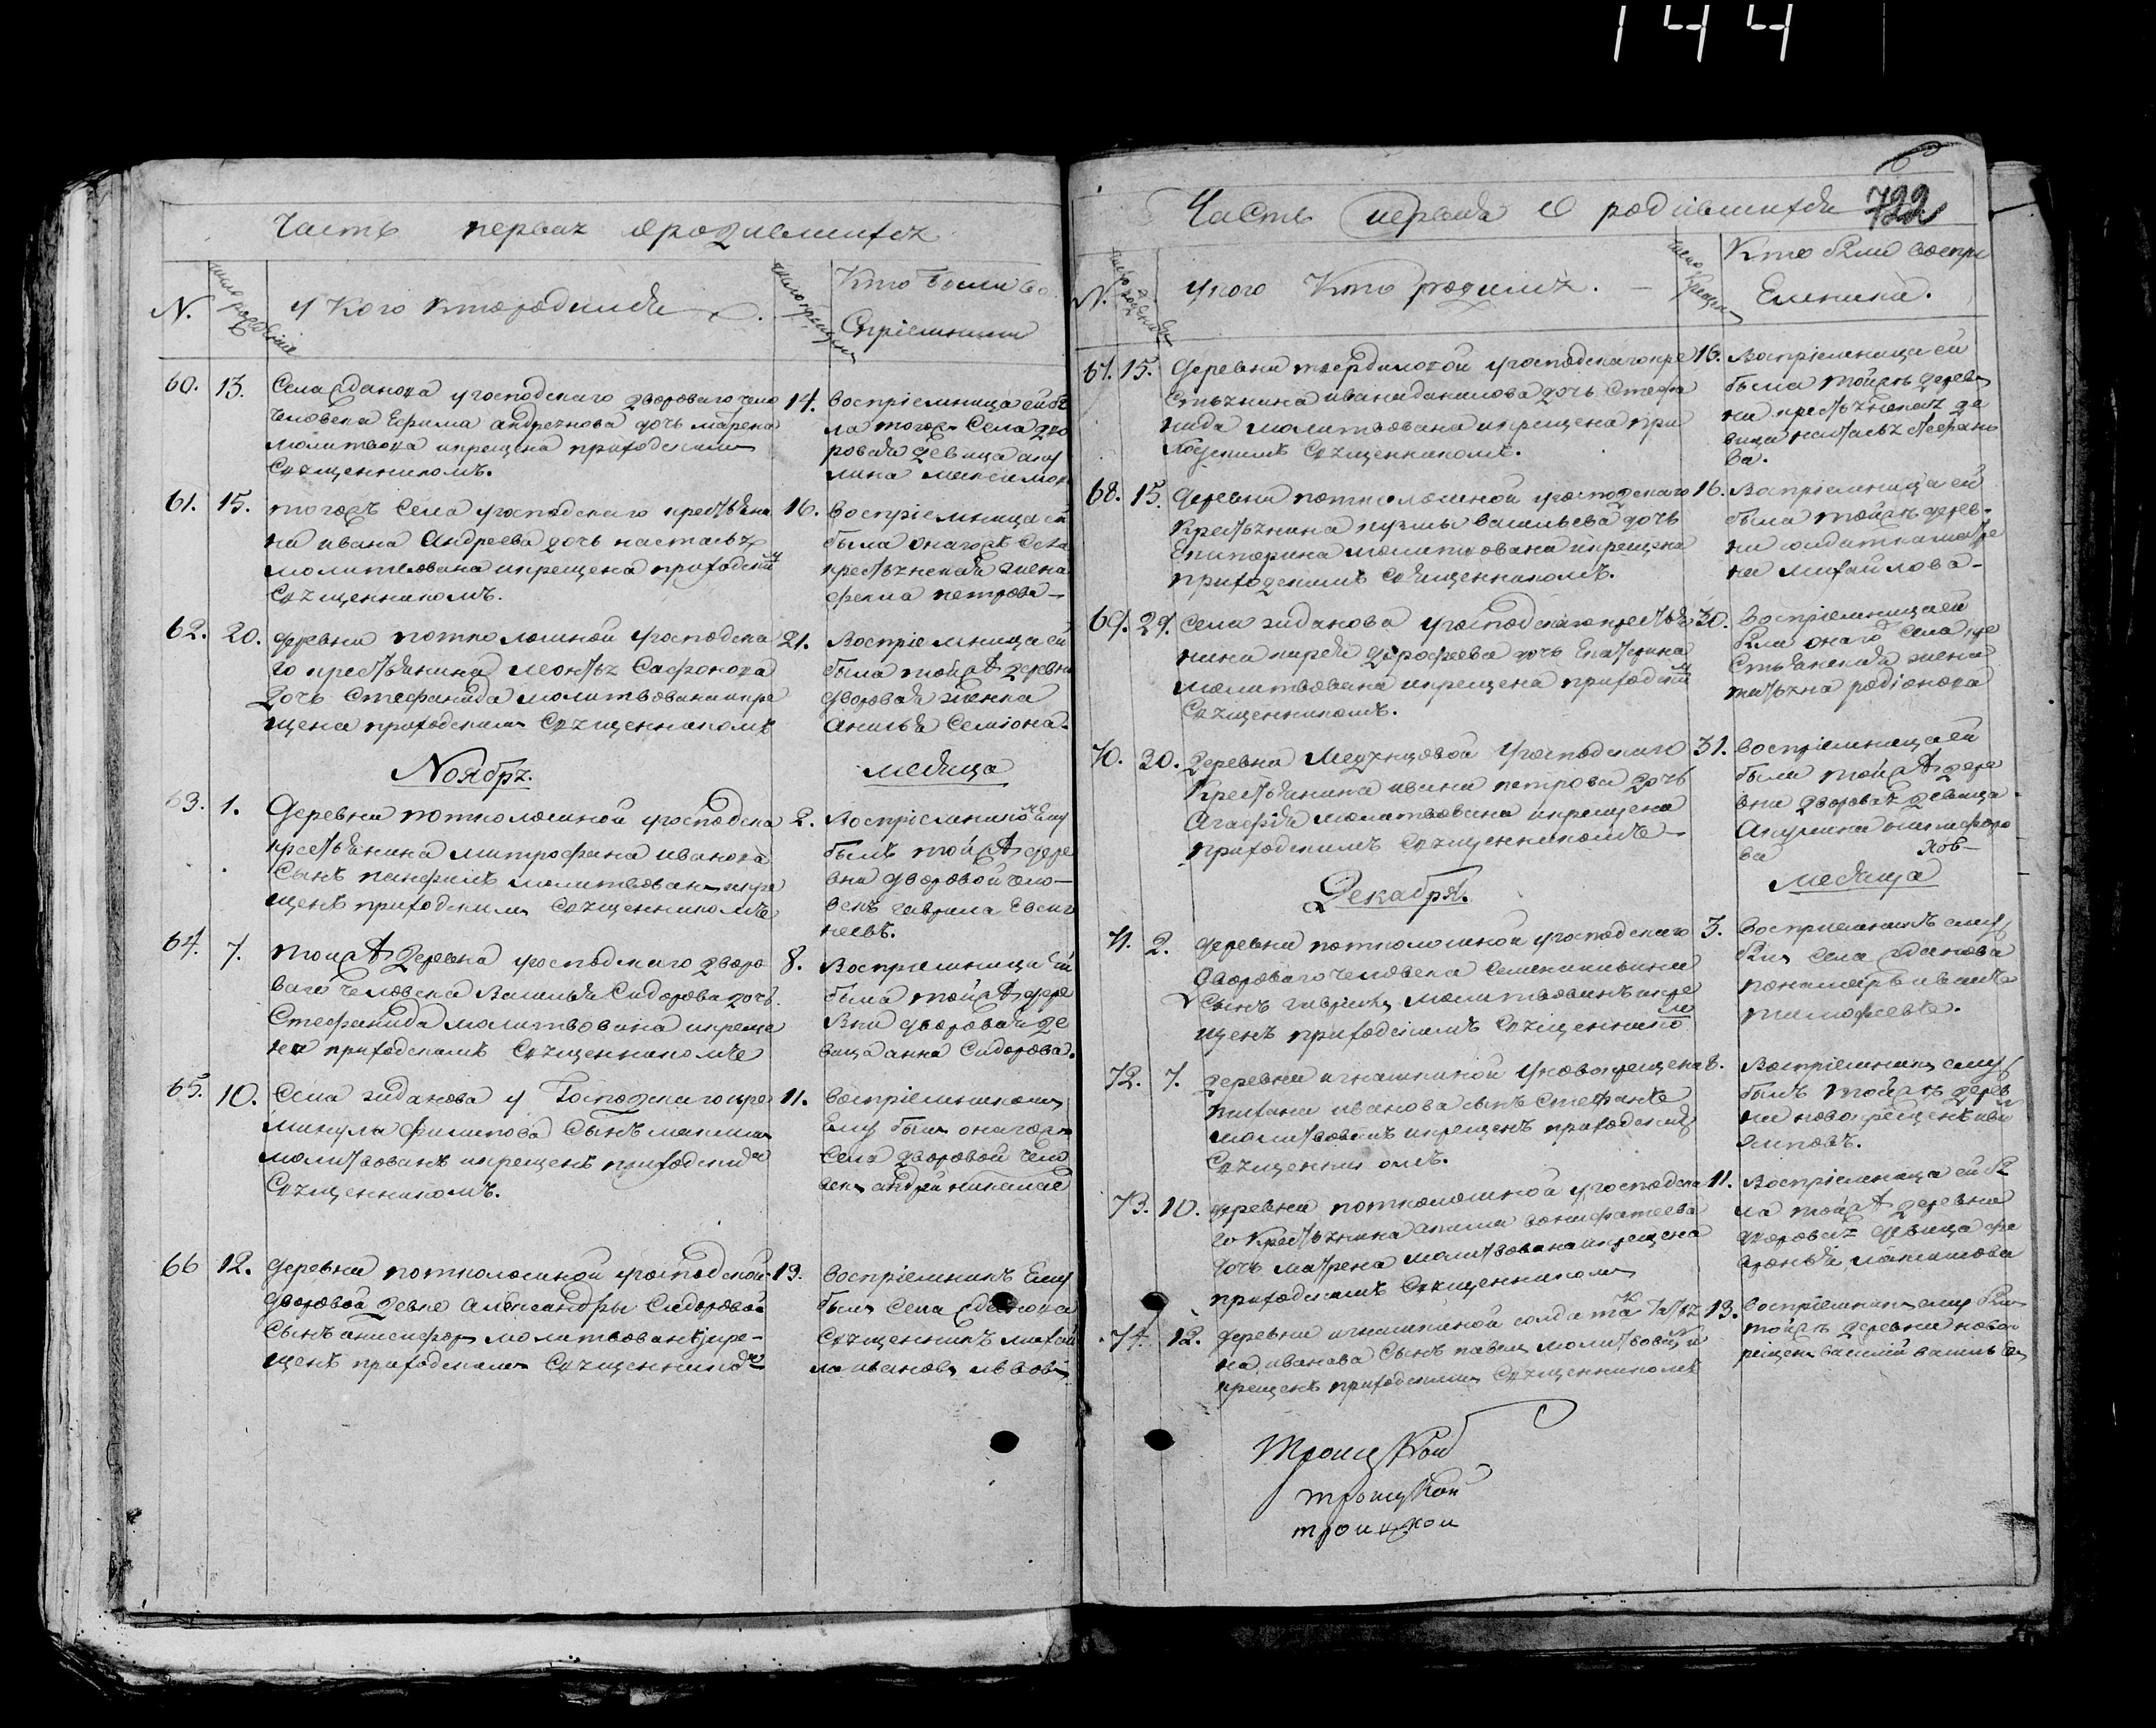 144
722
Часть первая о родившихся
N. число рождения у Кого кто родился число крещен Кто были во
спріемники
60. 13. Села Жданова у господскаго двороваго чело
человека Ефима андреянова дочь матрена
молитвова икрещена приходским
Священникомъ.
14. воспріемница ей бы
ла тогож Села дво
ровая девица аку
лина максимов
61. 15. тогожъ Села угосподскаго крестьяни
на ивана Андреева дочь настасья
молитвована икрещена приходским
Священникомъ.
16. воспріемница ей
была онагожъ Села
крестьянская жена
фекла петрова
62. 20. деревни поткололошной угосподска
го крестьянина леонтья Сафонова
дочь Стефанида молитвована икре
щена приходским Священникомъ
21. Воспріемница ей
была тойжъ деревни
дворовая жонка
Анисья Семіона
Ноябрь. месяца
63. 1. Деревни поткололошной угосподска
крестьянина митрофана иванова
Сынъ панфилъ молитвован икре
щенъ приходским Священникомъ
2. Воспріемникомъ Ему
былъ тойжъ дере
вни дворовой чело
векъ гаврила Евсиг
неевъ.
64. 7. тойжъ деревни угосподскаго дворо
ваго человека Василья Сидорова дочь
Стефанида молитвована икреще
на приходскимъ Священникомъ
8. Воспріемница ей
была тойжъ дере
вни дворовая де
вица анна Сидорова.
65. 10. Села жданова у Господскаго кре
микулы филипова Сынъ максим
молитвованъ икрещенъ приходским
Священникомъ.
11. воспріемником
Ему был онагож
Села дворовой чело
векъ андрей николае
66 12. деревни поткололошной угосподской
дворовой девке александры Сидоровой
Сынъ анисифор молитвованъ икре-
щенъ приходским Священником
13. воспріемникъ Ему
был Села Жданова
Священникъ михай
ла иванов львов
Часть первая О родившихся
N. число рождения укого Кто родился. число Крещен Кто были воспрі
Емники.
67. 15. деревни твердиловой угосподскаго кре
стьянина ивана данилова дочь Стефа
нида молитвована икрещена при
ходскимъ Священникомъ.
16. Воспріемница ей
была тойжъ дерев
ни крестьянская де
вица настасья стефано
ва.
68. 15. деревни поткололошной угосподскаго
крестьянина кузмы васильева дочь
Екатерина молитвована икрещена
приходскимъ Священникомъ.
16. Воспріемница ей
была тойжъ дерев-
ни солдатка матре
на михайлова
69. 29. села жданова угосподскаго крестья
нина карпа дорофеева дочь Екатерина
молитвована икрещена приходским
Священникомъ.
30. воспріемница ей
был онаго села кре
стьянская жена
татьяна родіонова
70. 30. деревни Медянцовой угосподскаго
крестьянина ивана петрова дочь
Агафья молитвована икрещена
приходскимъ Священникомъ
31. воспріемница ей
была тойжъ дере
вни дворовая девица
Акулина никифоро
ва
Декабря. месяца
71. 2. деревни поткололошной угосподскаго
двороваго человека Семена ильина
Сынъ гаврила молитвованъ икре
щенъ приходскимъ Священником
3. воспріемникъ ему
был Села жданова
понамарь иванъ
тимофеевъ.
72. 7. деревни игнашкиной уновокрещена
иванова сынъ стефанъ
молитвованъ икрещенъ приходским
Священникомъ.
8. Воспріемник ему
былъ тойжъ дерев
ни новокрещенъ
73. 10. деревни поткололошной угосподска
го крестьянина вонифатеева
дочь матрена молитвована икрещена
приходскимъ Священником
11. Воспріемница ей бы
ла тойжъ деревни
дворовая девица фе
вронья максимова
74. 12. деревни игнашкиной солдатка татья
на иванова Сынъ павел молитвован и
крещенъ приходским Священникомъ
13. воспріемник ему был
тойжъ деревни новок
рещен василий васильев
Троицкой
троицкой
троицкой